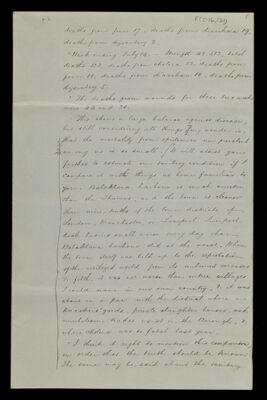 deaths from fever 17, deaths from diarrhoea 19,
deaths from dysentery 2.
"Week ending July 14. - Strength 42,513, total
deaths 123, deaths from cholera 52, deaths from
fever 18, deaths from diarrhoea 10, deaths from
dysentery 5.
"The deaths from wounds for these two weeks
were 44 and 30.
"This shows a large balance against disease;
but still considering all things my wonder is,
that the mortality from epidemics now prevalent
among us is so small. It will assist you
further to estimate our sanitary condition if I
compare it with things at home familiar to
you. Balaklava harbour is much sweeter
than the Thames, and the town is cleaner
than nine-tenths of the low districts of
London, Manchester, or Liverpool. Liverpool
dock basins smell worse every day than
Balaklava harbour did at the worst. When
the town itself was held up to the reprobation
of the civilized world from its untold horrors
of filth, it was not worse than entire villages
I could name in our own country, & it was
about on a par with the district where
knackers' yards, private slaughter houses, and
unwholesome trades exist in the Borough, &
where cholera was so fatal last year.
"I think it right to mention this comparison
in order that the truth should be known.
The same may be said about the sanitary